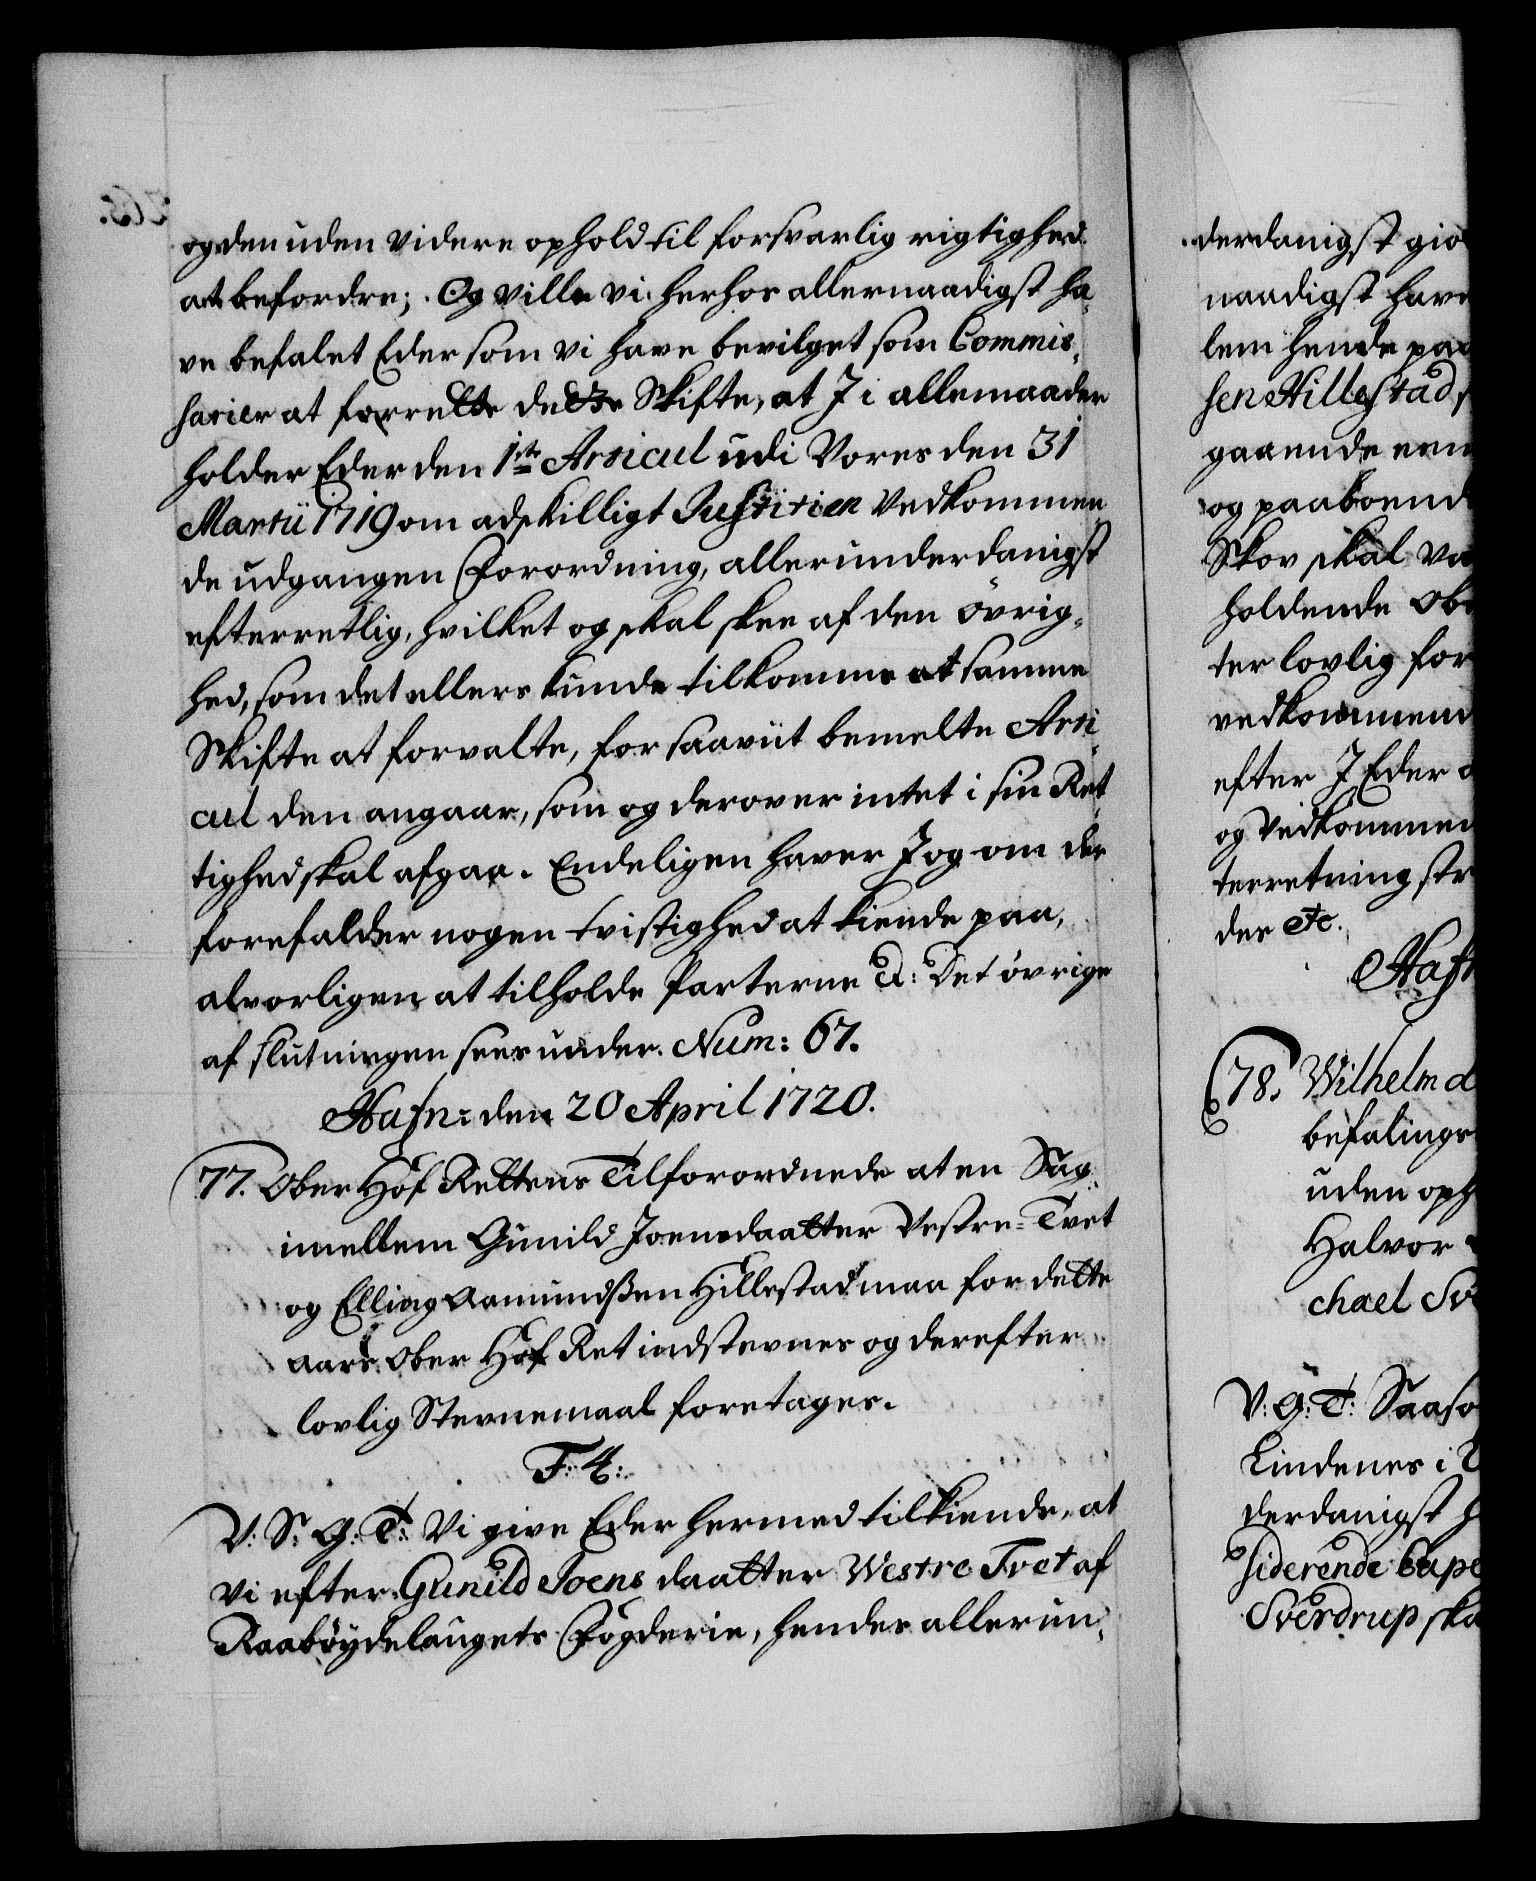 og den uden videre ophold til forsvarlig rigtighed
at befordre; Og ville vi herhos allernaadigst ha-
ve befalet Eder som vi have bevilget som Commis-
sarier at forrette dette Skifte, at I i allemaader
holder Eder den 1ste Articul udi Vores den 31
Martii 1719 om adskilligt Justitien Vedkommen
de udgangen Forordning, allerunderdanigst
efterretlig, hvilket og skal skee af den øvrig-
hed, som det ellers kunde tilkomme at samme
Skifte at forvalte, for saavit bemelte Arti-
cul den angaar, som og derover intet i sin Ret
tighed skal afgaa. Endeligen haver I og om der
forefalder nogen tvistighed at kiende paa,
alvorligen at tilholde Parterne &: Det øvrige
af slutningen sees under Num: 67.
Hafn: den 20 April 1720.
77. Ober Hof Rettens Tilforordnede at en Sag
imellem Gunild Joensdaatter Vestre-Tvet
og Elling Aamundsen Hillestad maa for dette
aars Ober Hof Ret indstevnes og derefter
lovlig Stevnemaal foretages.
F: 4:
V: S: G: T: Vi give Eder hermed tilkiende, at
vi efter Gunild Joens daatter Westre Tvet af
Raabøydelaugets Fogderie, hendes allerun-
derdanigst gio
naadigst have
lem hende paa
sen Hillestad
gaaende een
og paaboend
Skov skal va
holdende Obe
ter lovlig for
vedkommend
efter I Eder
og Vedkommen
terretning str
des &c.
Hafn
78. Wilhelm d
befalings
uden oph
Halvor
chael Sv
V: G: T: Saaso
Lindenes i
derdanigst h
siderende Cape
Sverdrup ska